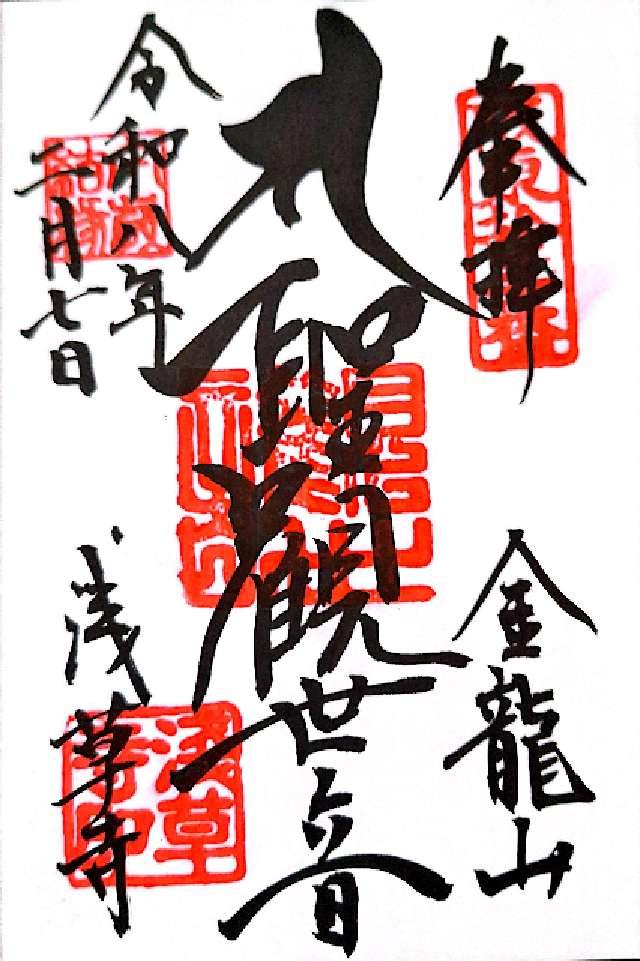 奉拝
金龍山
聖観世音
令和八年
二月七日
浅草寺
浅草